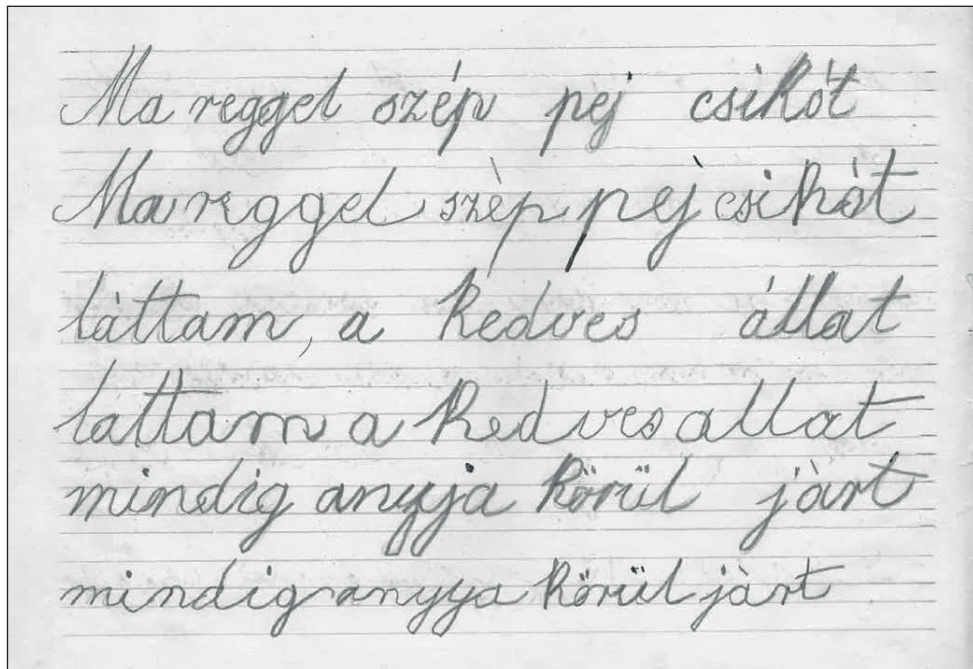 Ma reggel szép pej csikót
Ma reggel szèp pej csikót
láttam, a kedves állat
láttam a kedves allat
mindig anyja körül jàrt
mindig anyya körül jàrt